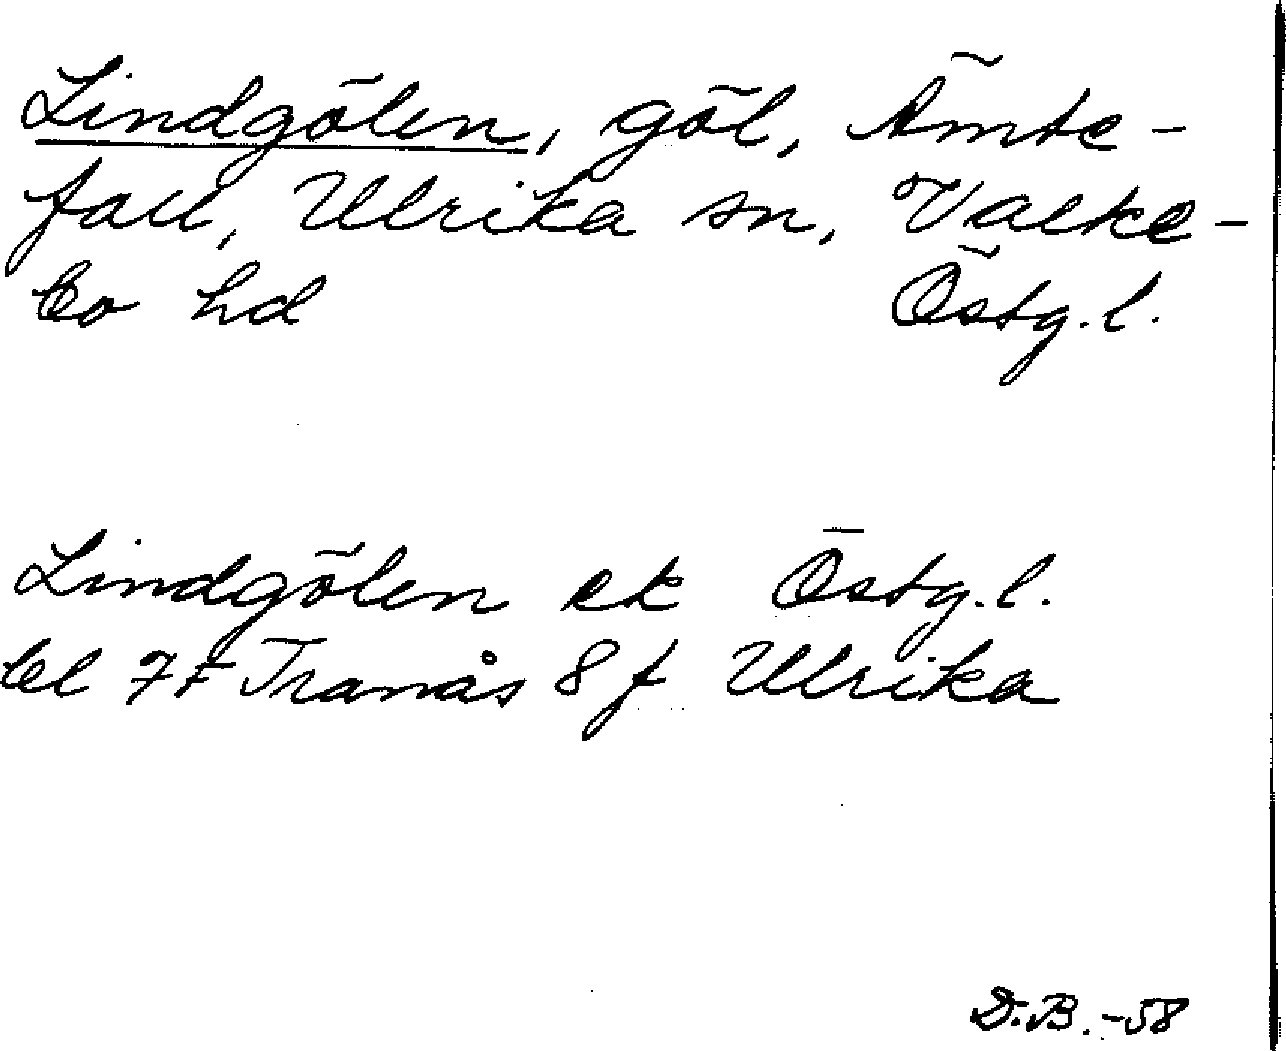 Lindgölen, göl, Ämte-
fall, Ulrika sn, Valke-
bo hd Östg. l.
Lindgölen ek Östg. l.
bl 7F Tranås 8f Ulrika
D.B. -58